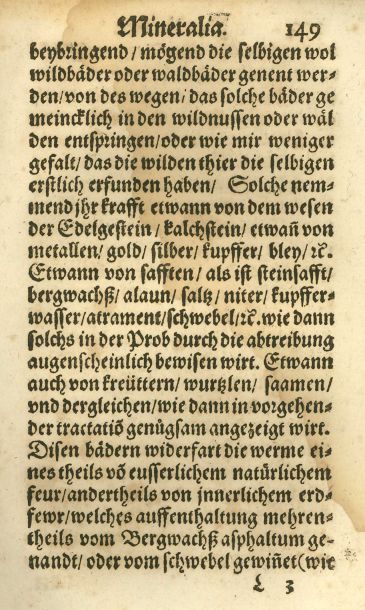 Mineralia. 149
beybringend / mögend die selbigen wol
wildbäder oder waldbäder genent wer⸗
den/von des wegen/ das solche bäder ge
meincklich in den wildnussen oder wäl
den entspringen/oder wie mir weniger
gefalt/ das die wilden thier die selbigen
erstlich erfunden haben/ Solche nem⸗
mend jhr krafft etwann von dem wesen
der Edelgestein / kalchstein/ etwañ von
metallen/ gold/ silber/ kupffer/ bley /ꝛc.
Etwann von safften/ als ist steinsafft/
bergwachß/ alaun/ saltz/ niter/ kupffer⸗
wasser/atrament/schwebel/ꝛc. wie dann
solchs in der Prob durch die abtreibung
augenscheinlich bewisen wirt. Etwann
auch von kreüttern/ wurtzlen/ saamen/
vnd dergleichen/ wie dann in vorgehen⸗
der tractatiõ genůgsam angezeigt wirt.
Disen bädern widerfart die werme ei⸗
nes theils võ eusserlichem natürlichem
feur/andertheils von jnnerlichem erd⸗
fewr/welches auffenthaltung mehren⸗
theils vom Bergwachß asphaltum ge⸗
nandt/ oder vom schwebel gewiñet(wie
L 3